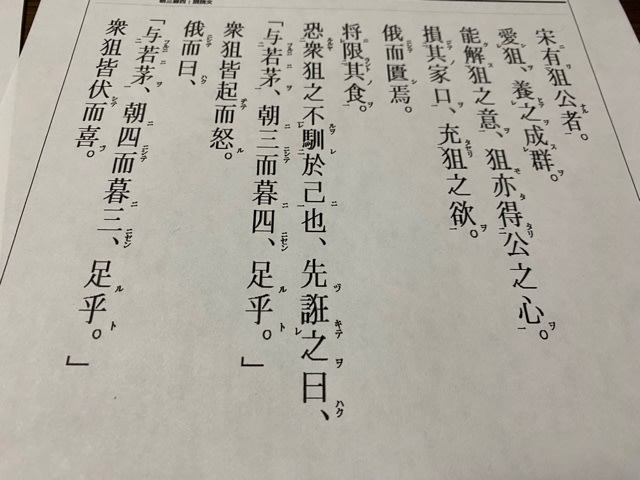 宋有狙公者。
愛狙、養之成群。
能解狙之意、狙亦得公之心。
損其家口、充狙之欲。
俄而匱焉。
将限其食。
恐衆狙之不馴於己也、先誑之曰、
「与若茅、朝三而暮四、足乎。」
衆狙皆起而怒。
俄而曰、
「与若茅、朝四而暮三、足乎。」
衆狙皆伏而喜。